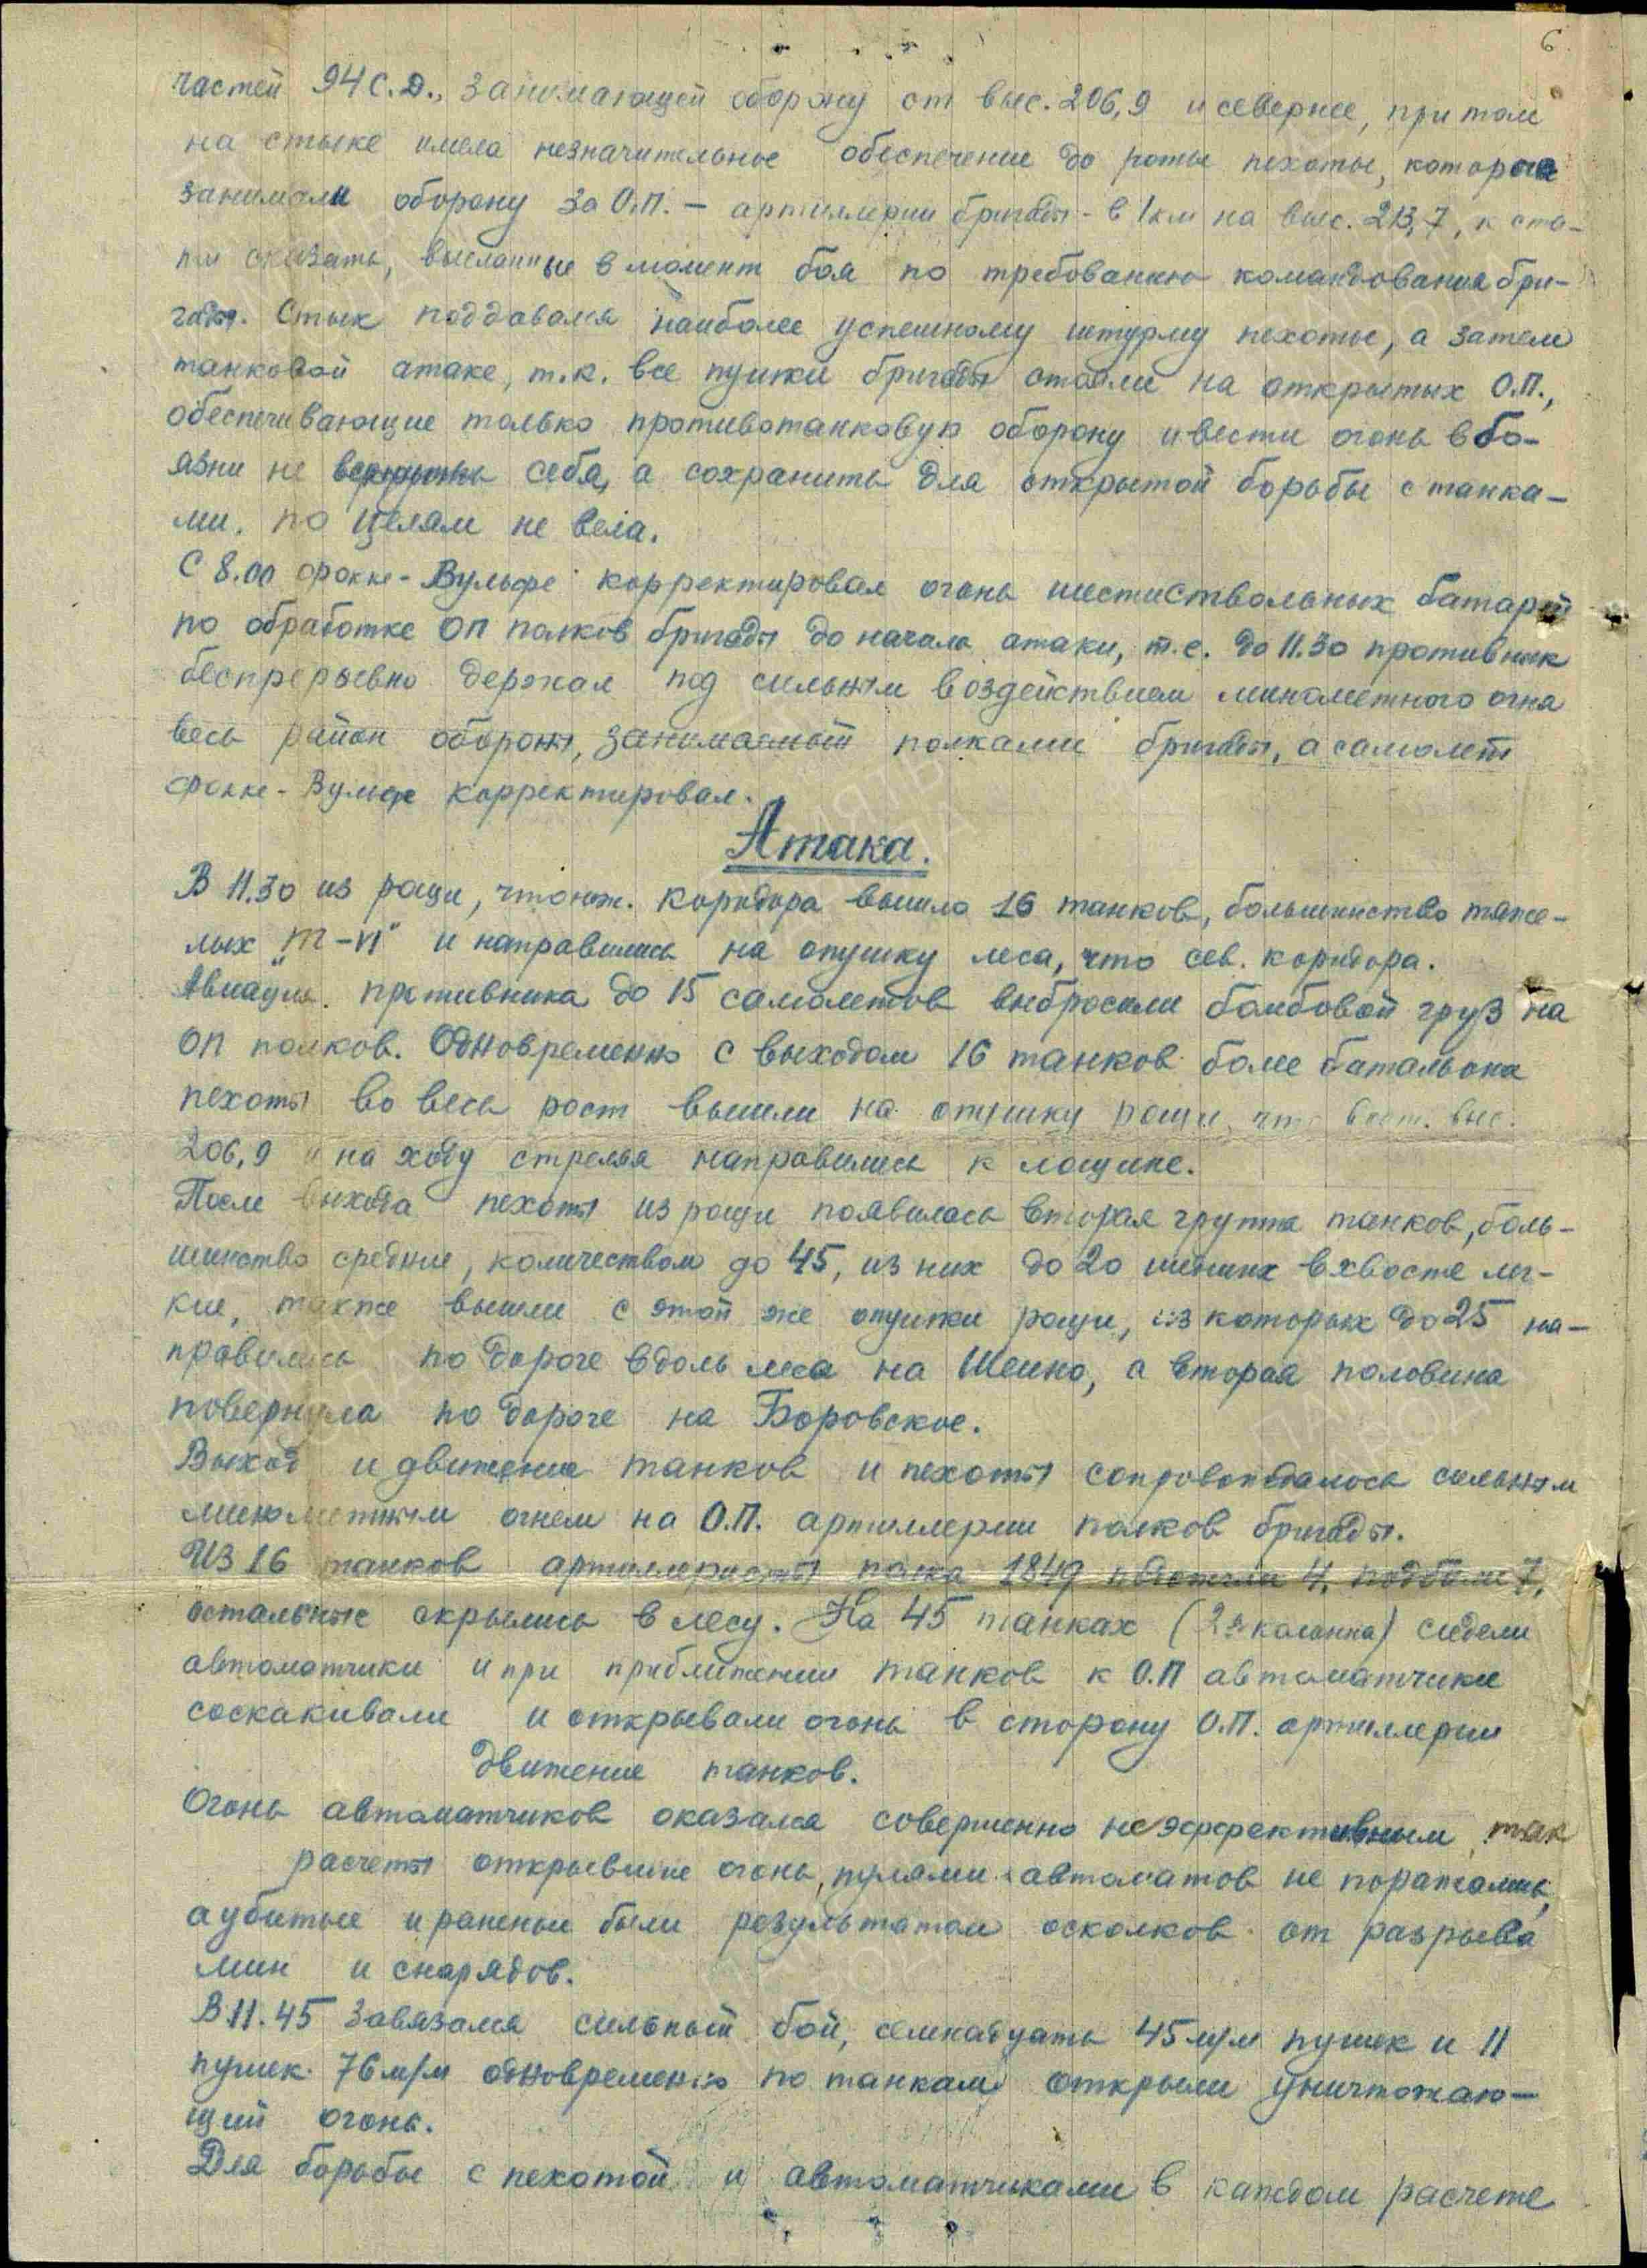 6
частей 94 С.Д., занимающей оборону от выс. 206,9 и севернее, при том
на стыке имела незначительное обеспечение до роты пехоты, которые
занимали оборону за О.П. – артиллерии бригады - в 1 км на выс. 213,7, к ста-
ти сказать, высланные в момент боя по требованию командования бри-
гады. Стык поддавался наиболее успешному штурму пехоты, а затем
танковой атаке, т.к. все пушки бригады стояли на открытых О.П.,
обеспечивающие только противотанковую оборону и вести огонь в бо-
язни не вскрыть себя, а сохранить для открытой борьбы с танка-
ми, по целям не вела.
С 8.00 фокке-Вульф корректировал огонь шестиствольных батарей
по обработке ОП полков бригады до начала атаки, т.е. до 11.30 противник
беспрерывно держал под сильным воздействием минометного огня
весь район обороны, занимаемый полками бригады, а самолет
фокке-Вульф корректировал.
Атака.
В 11.30 из рощи, что юж. коридора вышло 16 танков, большинство тяже-
лых "Т-VI" и направились на опушку леса, что сев. коридора.
Авиация противника до 15 самолетов выбросили бомбовой груз на
ОП полков. Одновременно с выходом 16 танков более батальона
пехоты во весь рост вышли на опушку рощи, что вост. выс.
206,9 и на ходу стреляя направились к лощине.
После выхода пехоты из рощи появилась вторая группа танков, боль-
шинство средние, количеством до 45, из них до 20 идущих в хвосте лег-
кие, также вышли с этой же опушки рощи, из которых до 25 на-
правились по дороге вдоль леса на Шеино, а вторая половина
повернула по дороге на Боровское.
Выход и движение танков и пехоты сопровождалось сильным
минометным огнем на О.П. артиллерии полков бригады.
Из 16 танков артиллеристы полка 1849 4, подбили 7,
остальные скрылись в лесу. На 45 танках (2я колонна) сидели
автоматчики и при приближении танков к О.П автоматчики
соскакивали и открывали огонь в сторону О.П. артиллерии
движение танков.
Огонь автоматчиков оказался совершенно неэффективным, так
расчеты открывшие огонь, пулями автоматов не поражались,
а убитые и раненые были результатом осколков от разрыва
мин и снарядов.
В 11.45 завязался сильный бой, семнадцать 45 м/м пушек и 11
пушек 76 м/м одновременно по танкам открыли уничтожаю-
щий огонь.
Для борьбы с пехотой и автоматчиками в каждом расчете